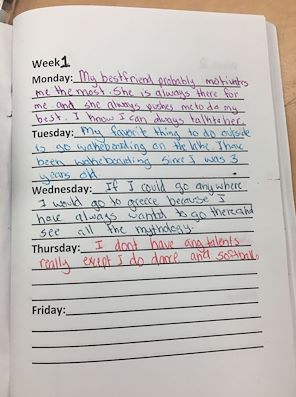 Week 1
Monday: My bestfriend probably motivates
me the most. She is always there for
me and she always pushes me to do my
best. I know I can always talk to her.
Tuesday: My favorit thing to do outside
is go wakeboarding on the lake. I have
been wakeboarding since I was 3
years old.
Wednesday: If I could go anywhere
I would go to greece because I
have always wanted to go there and
see all the mythology.
Thursday: I dont have any talents
really except I do dance and softball.
Friday: